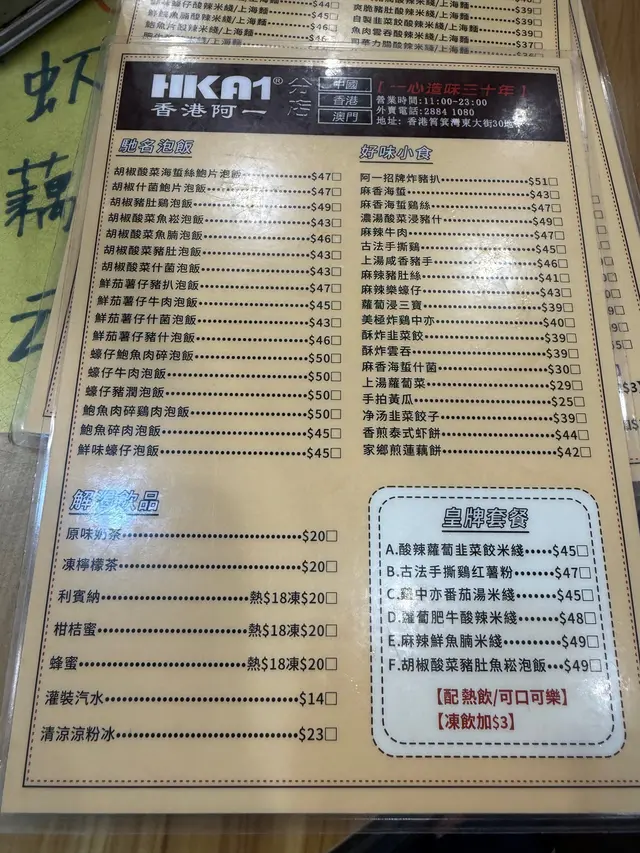 $44□
酸辣米綫/上海麵
$45□
鮑魚片酸辣米綫/上海麵
$46□
爽脆豬肚酸辣米綫/上海麵
$39□
自製韭菜餃酸辣米綫/上海麵
$39□
魚肉雲吞酸辣米綫/上海麵
$37□
$36□
蝦
藕
HKA1®
香港阿一
分店
中國
香港
澳門
【一心造味三十年】
營業時間:11:00-23:00
外賣電話:2884 1080
地址: 香港筲箕灣東大街30地
馳名泡飯
胡椒酸菜海蜇絲鮑片泡飯 $47□
胡椒什菌鮑片泡飯 $47□
胡椒豬肚鷄泡飯 $49□
胡椒酸菜魚崧泡飯 $43□
胡椒酸菜魚腩泡飯 $46□
胡椒酸菜豬肚泡飯 $43□
胡椒酸菜什菌泡飯 $43□
鮮茄薯仔豬扒泡飯 $47□
鮮茄薯仔牛肉泡飯 $45□
鮮茄薯仔什菌泡飯 $43□
鮮茄薯仔豬什泡飯 $46□
蠔仔鮑魚肉碎泡飯 $50□
蠔仔牛肉泡飯 $50□
蠔仔豬潤泡飯 $50□
鮑魚肉碎鷄肉泡飯 $50□
鮑魚碎肉泡飯 $45□
鮮味蠔仔泡飯 $45□
好味小食
阿一招牌炸豬扒 $51□
麻香海蜇 $43□
麻香海蜇鷄絲 $47□
濃湯酸菜浸豬什 $49□
麻辣牛肉 $47□
古法手撕鷄 $45□
上湯咸香豬手 $46□
麻辣豬肚絲 $41□
麻辣樂蠔仔 $43□
蘿蔔浸三寶 $39□
美極炸鷄中亦 $40□
酥炸韭菜餃 $39□
酥炸雲吞 $39□
麻香海蜇什菌 $30□
上湯蘿蔔菜 $29□
手拍黃瓜 $25□
净汤韭菜餃子 $39□
香煎泰式蝦餅 $44□
家鄉煎蓮藕餅 $42□
解渴飲品
原味奶茶 $20□
凍檸檬茶 $20□
利賓納 熱$18凍$20□
柑桔蜜 熱$18凍$20□
蜂蜜 熱$18凍$20□
灌裝汽水 $14□
清涼涼粉冰 $23□
皇牌套餐
A.酸辣蘿蔔韭菜餃米綫 $45□
B.古法手撕鷄红薯粉 $47□
C.鷄中亦番茄湯米綫 $45□
D.蘿蔔肥牛酸辣米綫 $48□
E.麻辣鮮魚腩米綫 $49□
F.胡椒酸菜豬肚魚崧泡飯 $49□
【配 熱飲/可口可樂】
【凍飲加$3】